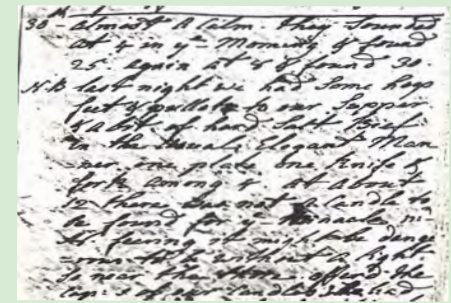 30th almost a Calm. they Sounded
at 4 in ye Morning & found
25. again at 8 & found 30.
N.B last night we had Some hogs
feet & potatoes to our Supper
& a bit of hard Salt Beef
in the Usual Elegant Man
ner, one plate one Knife &
fork among 4. at about
12 there was not a Candle to
be found for ye Binnacle
feering it might be dange
rous to be without a light
So near the offerd the